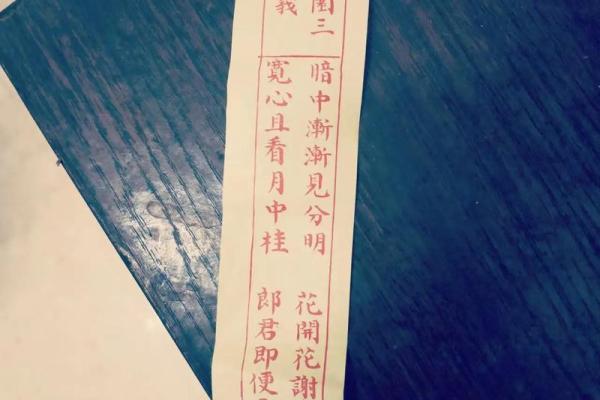 園三
義
暗中漸漸見分明 花開花謝
寬心且看月中桂 郎君即便